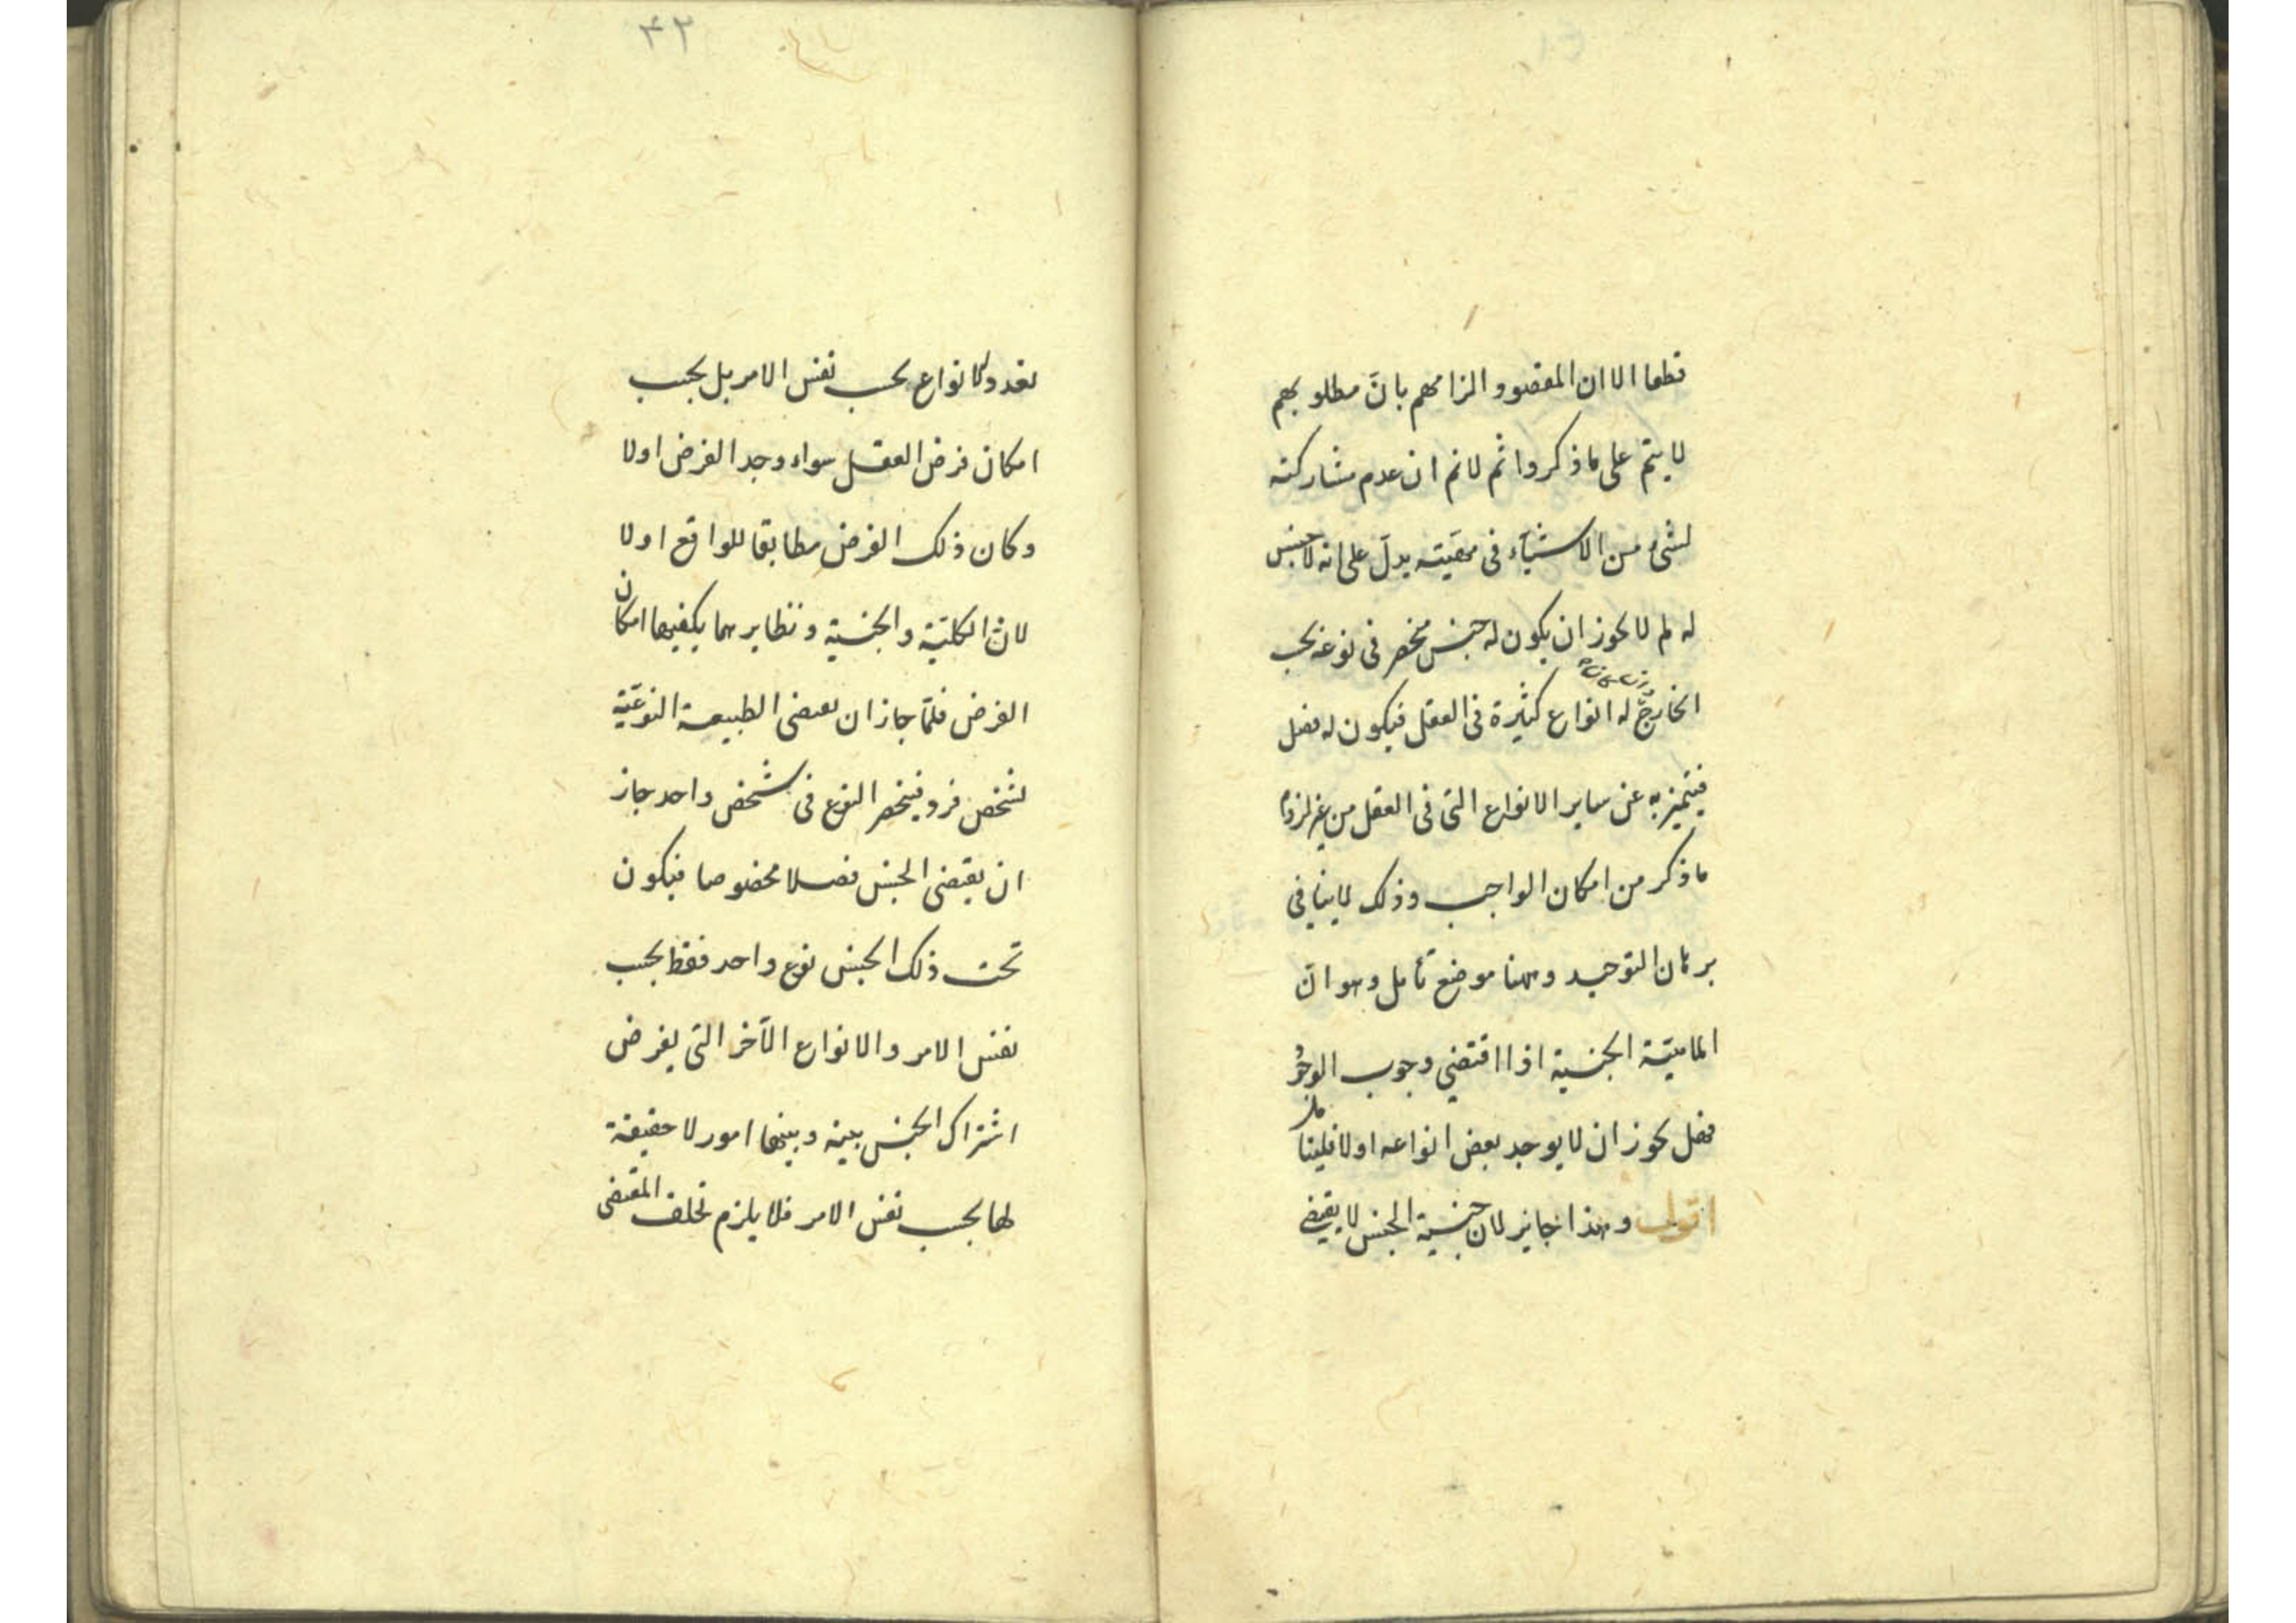 قطعا الا ان المقصود الزامهم بانّ مطلوبهم
لا يتم على ما ذكروا ثم لانم ان عدم مشاركته
لشىء من الاشيآء فى مهيته يدلّ على انه لا جنس
له لم لا يجوز ان يكون له جنس منحصر فى نوعه بحسب
الخارج له انواع كثيرة فى العقل فيكون له فصل
فيتميز به عن ساير الانواع التى فى العقل من غير لزوم
ما ذكر من امكان الواجب وذلك لا ينافى
برهان التوحيد وههنا موضع تأمل وهو انّ
الماهيّة الجنسية اذا اقتضى وجوب الوجود
فهل يجوز ان لا يوجد بعض انواعه اولا فليتأمل
اقول وهذا جايز لان جنسية الجنس لا يقتضى
۴۲
تعدد الانواع بحسب نفس الامر بل بحسب
امكان فرض العقل سواء وجد الفرض اولا
وكان ذلك الفرض مطابقا للواقع اولا
لانّ الكليّة والجنسية ونظايرهما يكفيها امكان
الفرض فلمّا جاز ان تقتضى الطبيعة النوعيّة
تشخص فرد فينحصر النوع فى شخص واحد جاز
ان يقتضى الجنس فصلا مخصوصا فيكون
تحت ذلك الجنس نوع واحد فقط بحسب
نفس الامر والانواع الآخر التى يفرض
اشتراك الجنس بينه وبينها امور لا حقيقة
لها بحسب نفس الامر فلا يلزم تخلف المقتضى